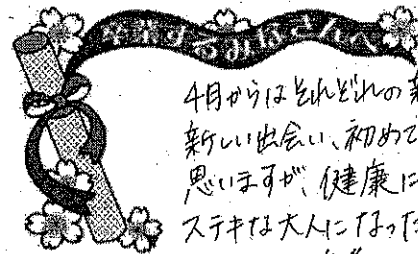 卒業するみなさんへ
4月からはそれぞれの新
新しい出会い、初めて
思いますが、健康に
ステキな大人になった